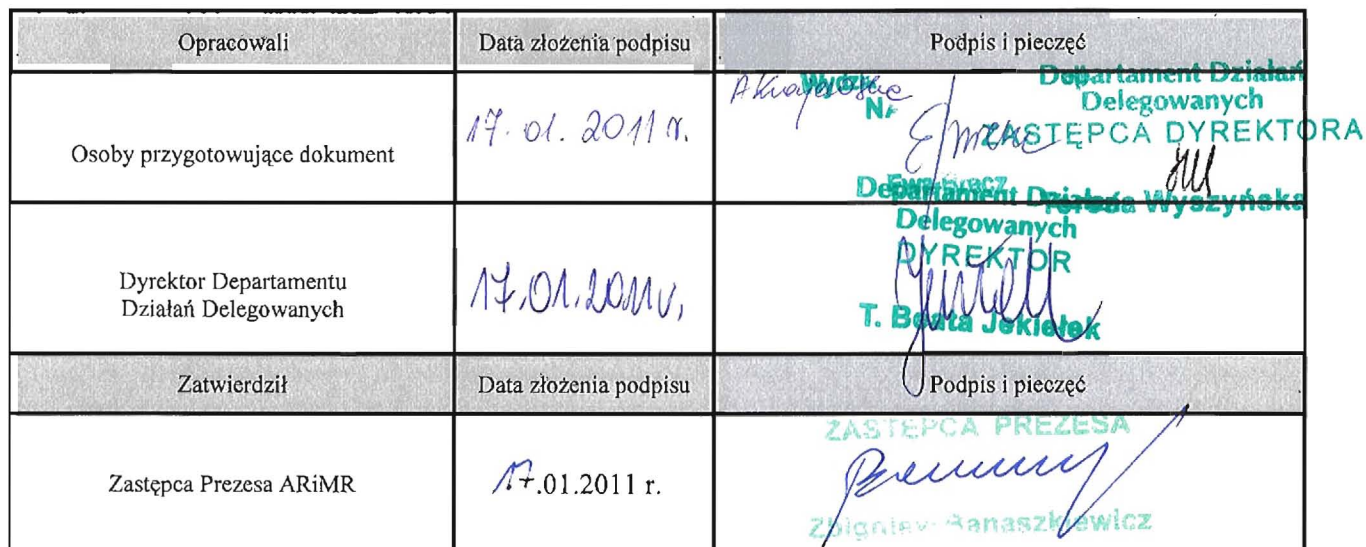 Opracowali Data złożenia podpisu Podpis i pieczęć
Osoby przygotowujące dokument
17. 01. 2011 r.
Departament Działań
Delegowanych
ZASTĘPCA DYREKTORA
Wyszyńska
Dyrektor Departamentu
Działań Delegowanych
17.01.2011r.
Departament Działań
Delegowanych
DYREKTOR
T. Beata Jekiełek
Zatwierdził Data złożenia podpisu Podpis i pieczęć
Zastępca Prezesa ARiMR
17.01.2011 r.
ZASTĘPCA PREZESA
Zbigniew Banaszkiewicz